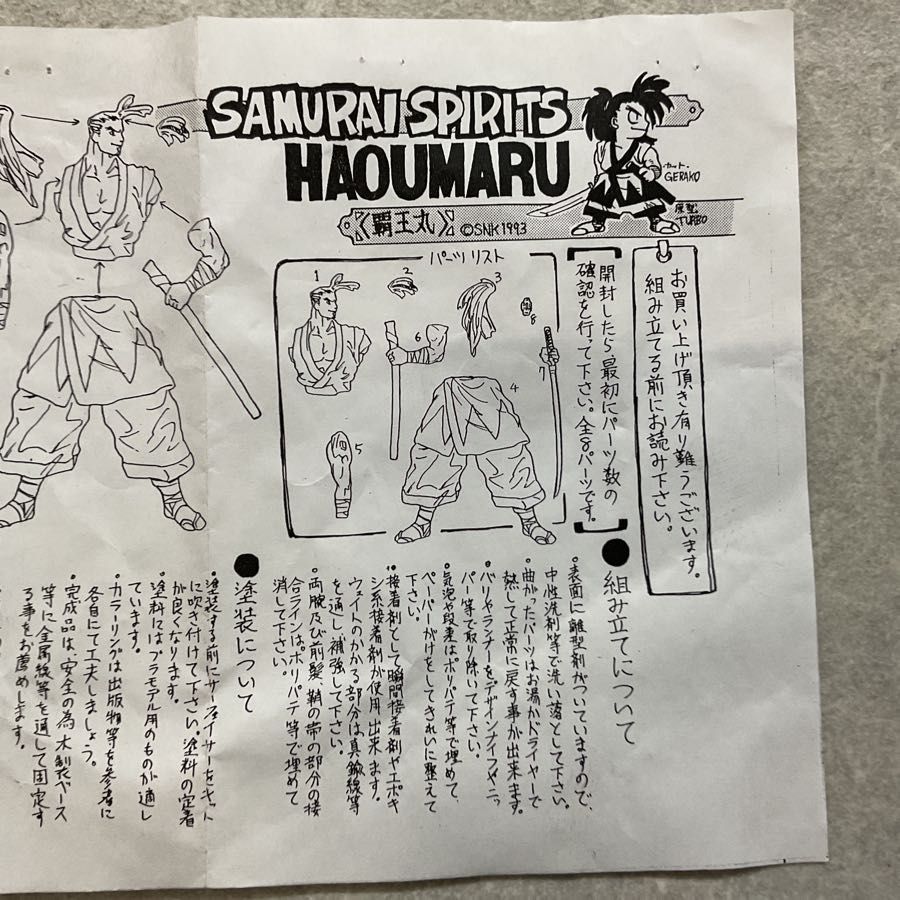 SAMURAI SPIRITS
HAOUMARU
《覇王丸》
©SNK1993
カット.
GERAKO
原型
TURBO
お買い上げ頂き有り難うございます。
組み立てる前にお読み下さい。
開封したら、最初にパーツ数の
確認を行って下さい。全8パーツです。
パーツリスト
1
2
3
4
5
6
7
8
●組み立てについて
・表面に離型剤がついていますので、
中性洗剤等で洗い落として下さい。
・曲がったパーツはお湯かドライヤーで
熱して正常に戻す事が出来ます。
・バリやランナーをデザインナイフやニッ
パー等で取り除いて下さい。
・気泡や段差はポリパテ等で埋めて、
ペーパーがけをしてきれいに整えて
下さい。
・接着剤として瞬間接着剤やエポキ
シ系接着剤が使用出来ます。
ウェイトのかかる部分は真鍮線等
を通し補強して下さい。
・両腕及び前髪、鞘の帯の部分の接
合ラインは、ポリパテ等で埋めて
消して下さい。
●塗装について
・塗装する前にサーフェイサーをキット
に吹き付けて下さい。塗料の定着
が良くなります。
・塗料にはプラモデル用のものが適し
ています。
・カラーリングは出版物等を参考に
各自にて工夫しましょう。
・完成品は、安全の為、木製ベース
等に金属線等を通して固定す
る事をお薦めします。